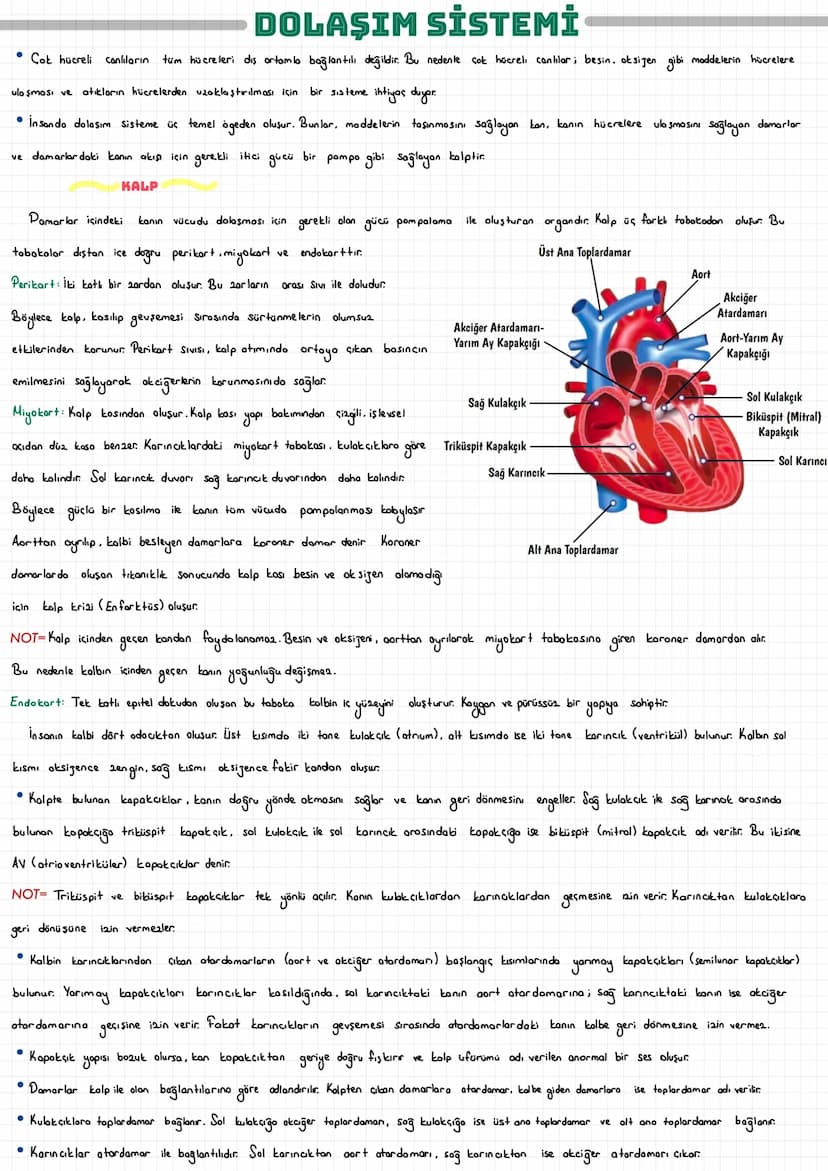 DOLAŞIM SİSTEMİ
• Çok hücreli canlıların tüm hücreleri dış ortamla bağlantılı değildir. Bu nedenle çok hücreli canlılar; besin, oksijen gibi maddelerin hücrelere
ulaşması ve atıkların hücrelerden uzaklaştırılması için bir sisteme ihtiyaç duyar.
• İnsanda dolaşım sisteme üç temel ögeden oluşur. Bunlar, maddelerin taşınmasını sağlayan kan, kanın hücrelere ulaşmasını sağlayan damarlar
ve damarlardaki kanın akışı için gerekli itici gücü bir pompa gibi sağlayan kalptir.
KALP
Damarlar içindeki kanın vücudu dolaşması için gerekli olan gücü pompalama ile oluşturan organdır. Kalp üç farklı tabakadan oluşur. Bu
tabakalar dıştan içe doğru perikart, miyokart ve endokarttır.
Perikart: İki katlı bir zardan oluşur. Bu zarların arası sıvı ile doludur.
Böylece kalp, kasılıp gevşemesi sırasında sürtünmelerin olumsuz
etkilerinden korunur. Perikart sıvısı, kalp atımında ortaya çıkan basıncın
emilmesini sağlayarak akciğerlerin korunmasınıda sağlar.
Miyokart: Kalp kasından oluşur. Kalp kası yapı bakımından çizgili, işlevsel
açıdan düz kasa benzer. Karıncıklardaki miyokart tabakası, kulakcıklara göre
daha kalındır. Sol karıncık duvarı sağ karıncık duvarından daha kalındır.
Böylece güçlü bir kasılma ile kanın tüm vücuda pompalanması kolaylaşır
Aorttan ayrılıp, kalbi besleyen damarlara koroner damar denir Koroner
damarlarda oluşan tıkanıklık sonucunda kalp kası besin ve oksijen alamadığı
için kalp krizi (Enfarktüs) oluşur.
Üst Ana Toplardamar
Aort
Akciğer
Atardamarı
Akciğer Atardamarı-
Yarım Ay Kapakçığı
Aort-Yarım Ay
Kapakçığı
Sağ Kulakçık
Sol Kulakçık
Biküspit (Mitral)
Kapakçık
Triküspit Kapakçık
Sol Karıncı
Sağ Karıncık
Alt Ana Toplardamar
NOT= Kalp içinden geçen kandan faydalanamaz. Besin ve oksijeni, aorttan ayrılarak miyokart tabakasına giren koroner damardan alır.
Bu nedenle kalbin içinden geçen kanın yoğunluğu değişmez.
Endokart: Tek katlı epitel dokudan oluşan bu tabaka kalbin iç yüzeyini oluşturur. Kaygan ve pürüssüz bir yapıya sahiptir.
İnsanın kalbi dört odacıktan oluşur. Üst kısımda iki tane kulakçık (atrium), alt kısımda ise iki tane karıncık (ventrikül) bulunur. Kalbın sol
kısmı oksijence zengin, sağ kısmı oksijence fakir kandan oluşur.
• Kalpte bulunan kapakcıklar, kanın doğru yönde akmasını sağlar ve kanın geri dönmesini engeller. Sağ kulakcık ile sağ karıncık arasında
bulunan kapakçığa triküspit kapakçık, sol kulakcık ile sol karıncık arasındaki kapakçığa ise biküspit (mitral) kapakcık adı verilir. Bu ikisine
AV (atrioventriküler) kapakcıklar denir.
NOT= Triküspit ve biküspit kapakcıklar tek yönlü açılır. Kanın kulakcıklardan karıncıklardan geçmesine izin verir. Karıncıktan kulakcıklara
geri dönüşüne izin vermezler.
• Kalbin karıncıklarından çıkan atardamarların (aort ve akciğer atardamarı) başlangıç kısımlarında yarımay kapakcıkları (semilunar kapakcıklar)
bulunur. Yarımay kapakcıkları karıncıklar kasıldığında, sol karıncıktaki kanın aort atardamarına; sağ karıncıktaki kanın ise akciğer
atardamarına geçişine izin verir. Fakat karıncıkların gevşemesi sırasında atardamarlardaki kanın kalbe geri dönmesine izin vermez.
• Kapakçık yapısı bozuk olursa, kan kapakcıktan geriye doğru fışkırır ve kalp üfürümü adı verilen anormal bir ses oluşur.
• Damarlar kalp ile olan bağlantılarına göre adlandırılır. Kalpten çıkan damarlara atardamar, kalbe giden damarlara ise toplardamar adı verilir.
• Kulakcıklara toplardamar bağlanır. Sol kulakçığa akciğer toplardamarı, sağ kulakçığa ise üst ana toplardamar ve alt ana toplardamar bağlanır.
• Karıncıklar atardamar ile bağlantılıdır. Sol karıncıktan aort atardamarı, sağ karıncıktan ise akciğer atardamarı çıkar.